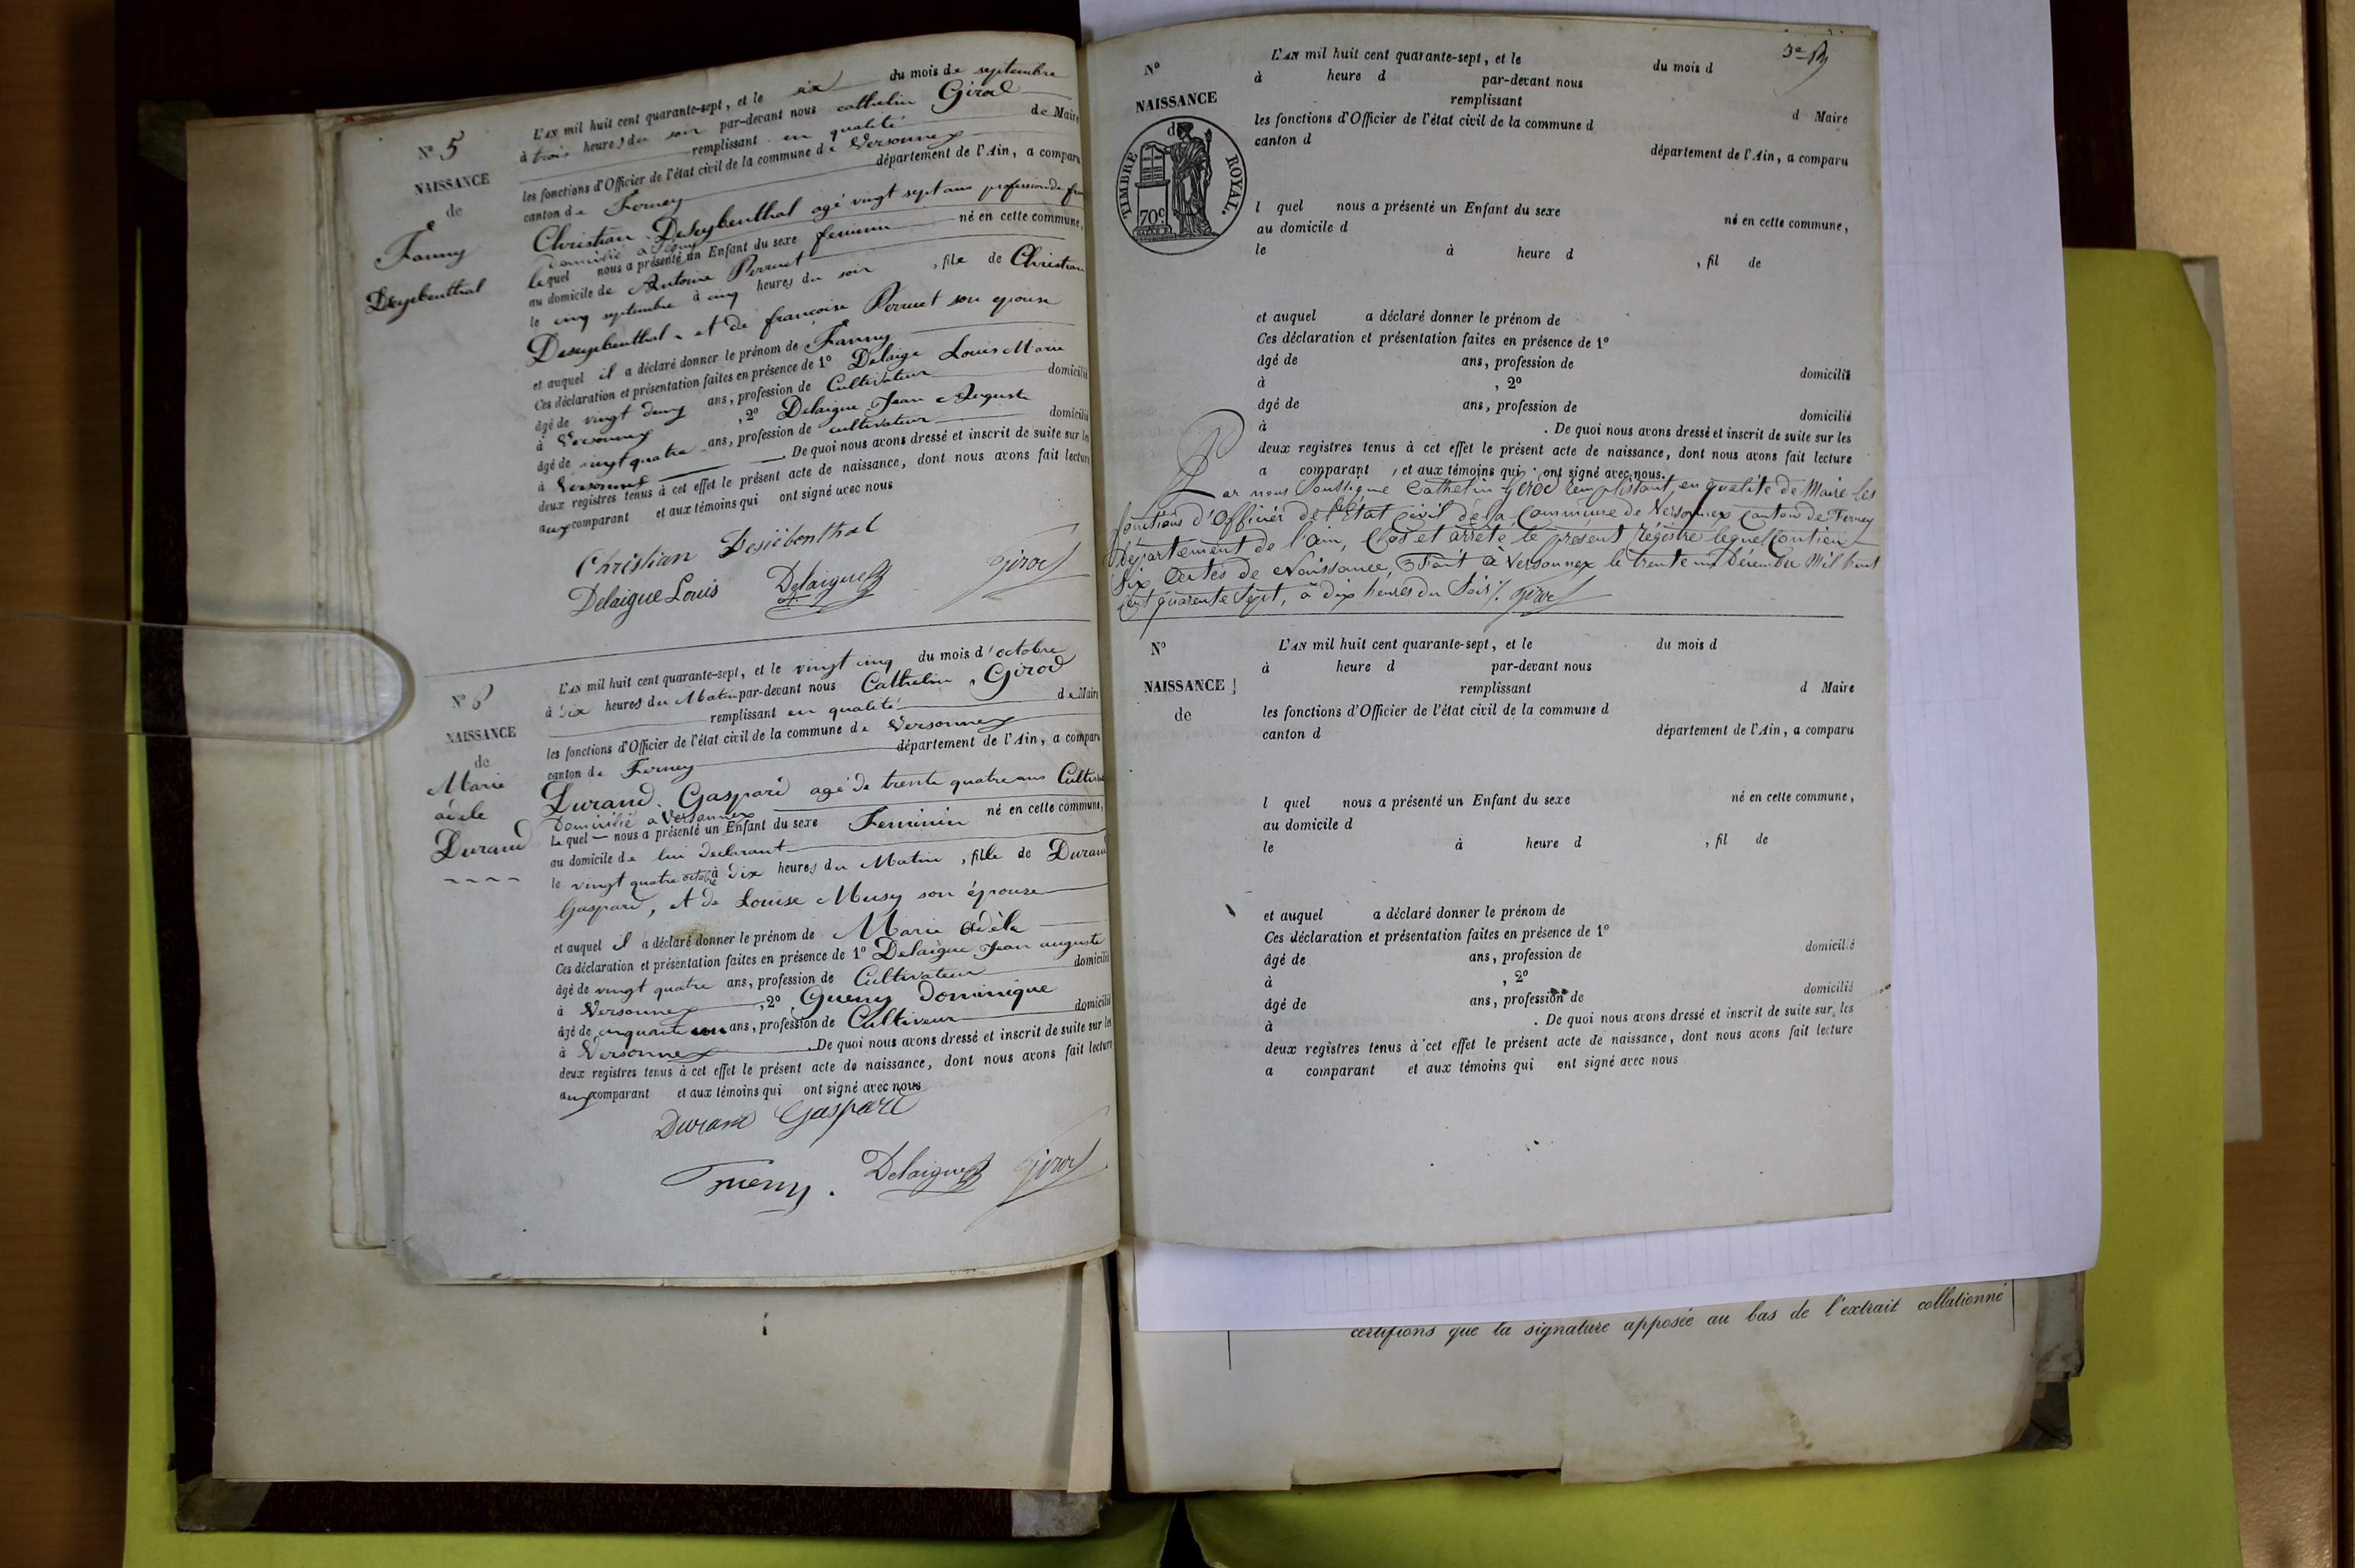 N° 5
NAISSANCE
de
Fanny
Deseybenthal
L'AN mil huit cent quarante-sept, et le six du mois de septembre
à trois heures du soir par-devant nous cathelin Girod
remplissant en qualité de Maire
les fonctions d'Officier de l'état civil de la commune de Versonnex
canton de Ferney département de l'Ain, a comparu
Christian Deseybenthal agé vingt sept ans profession de
domicilié a
lequel nous a présenté un Enfant du sexe feminin né en cette commune,
au domicile de Antoine Perruet
le cinq septembre à cinq heures du soir, fille de Christian
Deseybenthal et de françoise Perruet son epouse
et auquel il a déclaré donner le prénom de Fanny
Ces déclaration et présentation faites en présence de 1° Delaige Louis Marie
âgé de vingt deux ans, profession de Cultivateur domicilié
à Versonnex, 2° Delaigue Jean Auguste
âgé de vingt quatre ans, profession de cultivateur domicilié
à Versonnex De quoi nous avons dressé et inscrit de suite sur les
deux registres tenus à cet effet le présent acte de naissance, dont nous avons fait lecture
aux comparant et aux témoins qui ont signé avec nous
Christian Desiebenthal
Delaigue Louis Delaigue Girod
N° 6
NAISSANCE
de
Marie
adele
Durand
L'AN mil huit cent quarante-sept, et le vingt cinq du mois d'octobre
à dix heures du Matin par-devant nous Cathelin Girod
remplissant en qualité de Maire
les fonctions d'Officier de l'état civil de la commune de Versonnex
canton de Ferney département de l'Ain, a comparu
Durand Gaspard agé de trente quatre ans Cultiva
Domicilié a Versonnex
Le quel nous a présenté un Enfant du sexe Feminin né en cette commune,
au domicile de lui declarant
le vingt quatre octobre à dix heures du Matin, fille de Durand
Gaspard, et de Louise Musy son épouse
et auquel il a déclaré donner le prénom de Marie Adèle
Ces déclaration et présentation faites en présence de 1° Delaigue Jean auguste
âgé de vingt quatre ans, profession de Cultivateur domicilié
à Versonnex, 2° Gueny Dominique
âgé de cinquante un ans, profession de Cultiveur domicilié
à Versonnex De quoi nous avons dressé et inscrit de suite sur les
deux registres tenus à cet effet le présent acte de naissance, dont nous avons fait lecture
aux comparant et aux témoins qui ont signé avec nous
Durand Gaspard
Gueny. Delaigue Girod
N°
NAISSANCE
d
TIMBRE ROYAL.
70c
L'AN mil huit cent quarante-sept, et le du mois d
à heure d par-devant nous
remplissant d Maire
les fonctions d'Officier de l'état civil de la commune d
canton d département de l'Ain, a comparu
l quel nous a présenté un Enfant du sexe né en cette commune,
au domicile d
le à heure d , fil de
et auquel a déclaré donner le prénom de
Ces déclaration et présentation faites en présence de 1°
âgé de ans, profession de domicilié
à , 2°
âgé de ans, profession de domicilié
à . De quoi nous avons dressé et inscrit de suite sur les
deux registres tenus à cet effet le présent acte de naissance, dont nous avons fait lecture
a comparant , et aux témoins qui ont signé avec nous.
Par nous Soussigné Cathelin Girod remplissant, en qualité de Maire les
fonctions d'Officier de l'État Civil de la Commune de Versonnex Canton de Ferney
Département de l'ain, Clos et arrêté le présent régistre lequel Contient
Six Actes de Naissance, Fait à Versonnex le trente un Décembre Mil huit
cent quarente Sept, à dix heures du Soir. Girod
N°
NAISSANCE
de
L'AN mil huit cent quarante-sept, et le du mois d
à heure d par-devant nous
remplissant d Maire
les fonctions d'Officier de l'état civil de la commune d
canton d département de l'Ain, a comparu
l quel nous a présenté un Enfant du sexe né en cette commune,
au domicile d
le à heure d , fil de
et auquel a déclaré donner le prénom de
Ces déclaration et présentation faites en présence de 1°
âgé de ans, profession de domicilié
à , 2°
âgé de ans, profession de domicilié
à . De quoi nous avons dressé et inscrit de suite sur les
deux registres tenus à cet effet le présent acte de naissance, dont nous avons fait lecture
a comparant et aux témoins qui ont signé avec nous
certifions que la signature apposée au bas de l'extrait collationné